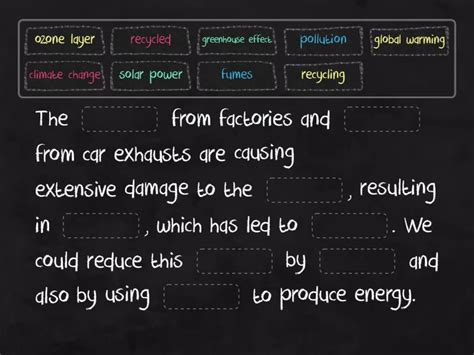 ozone layer recycled greenhouse effect pollution global warming
climate change solar power fumes recycling
The from factories and
from car exhausts are causing
extensive damage to the , resulting
in , which has led to . We
could reduce this by and
also by using to produce energy.